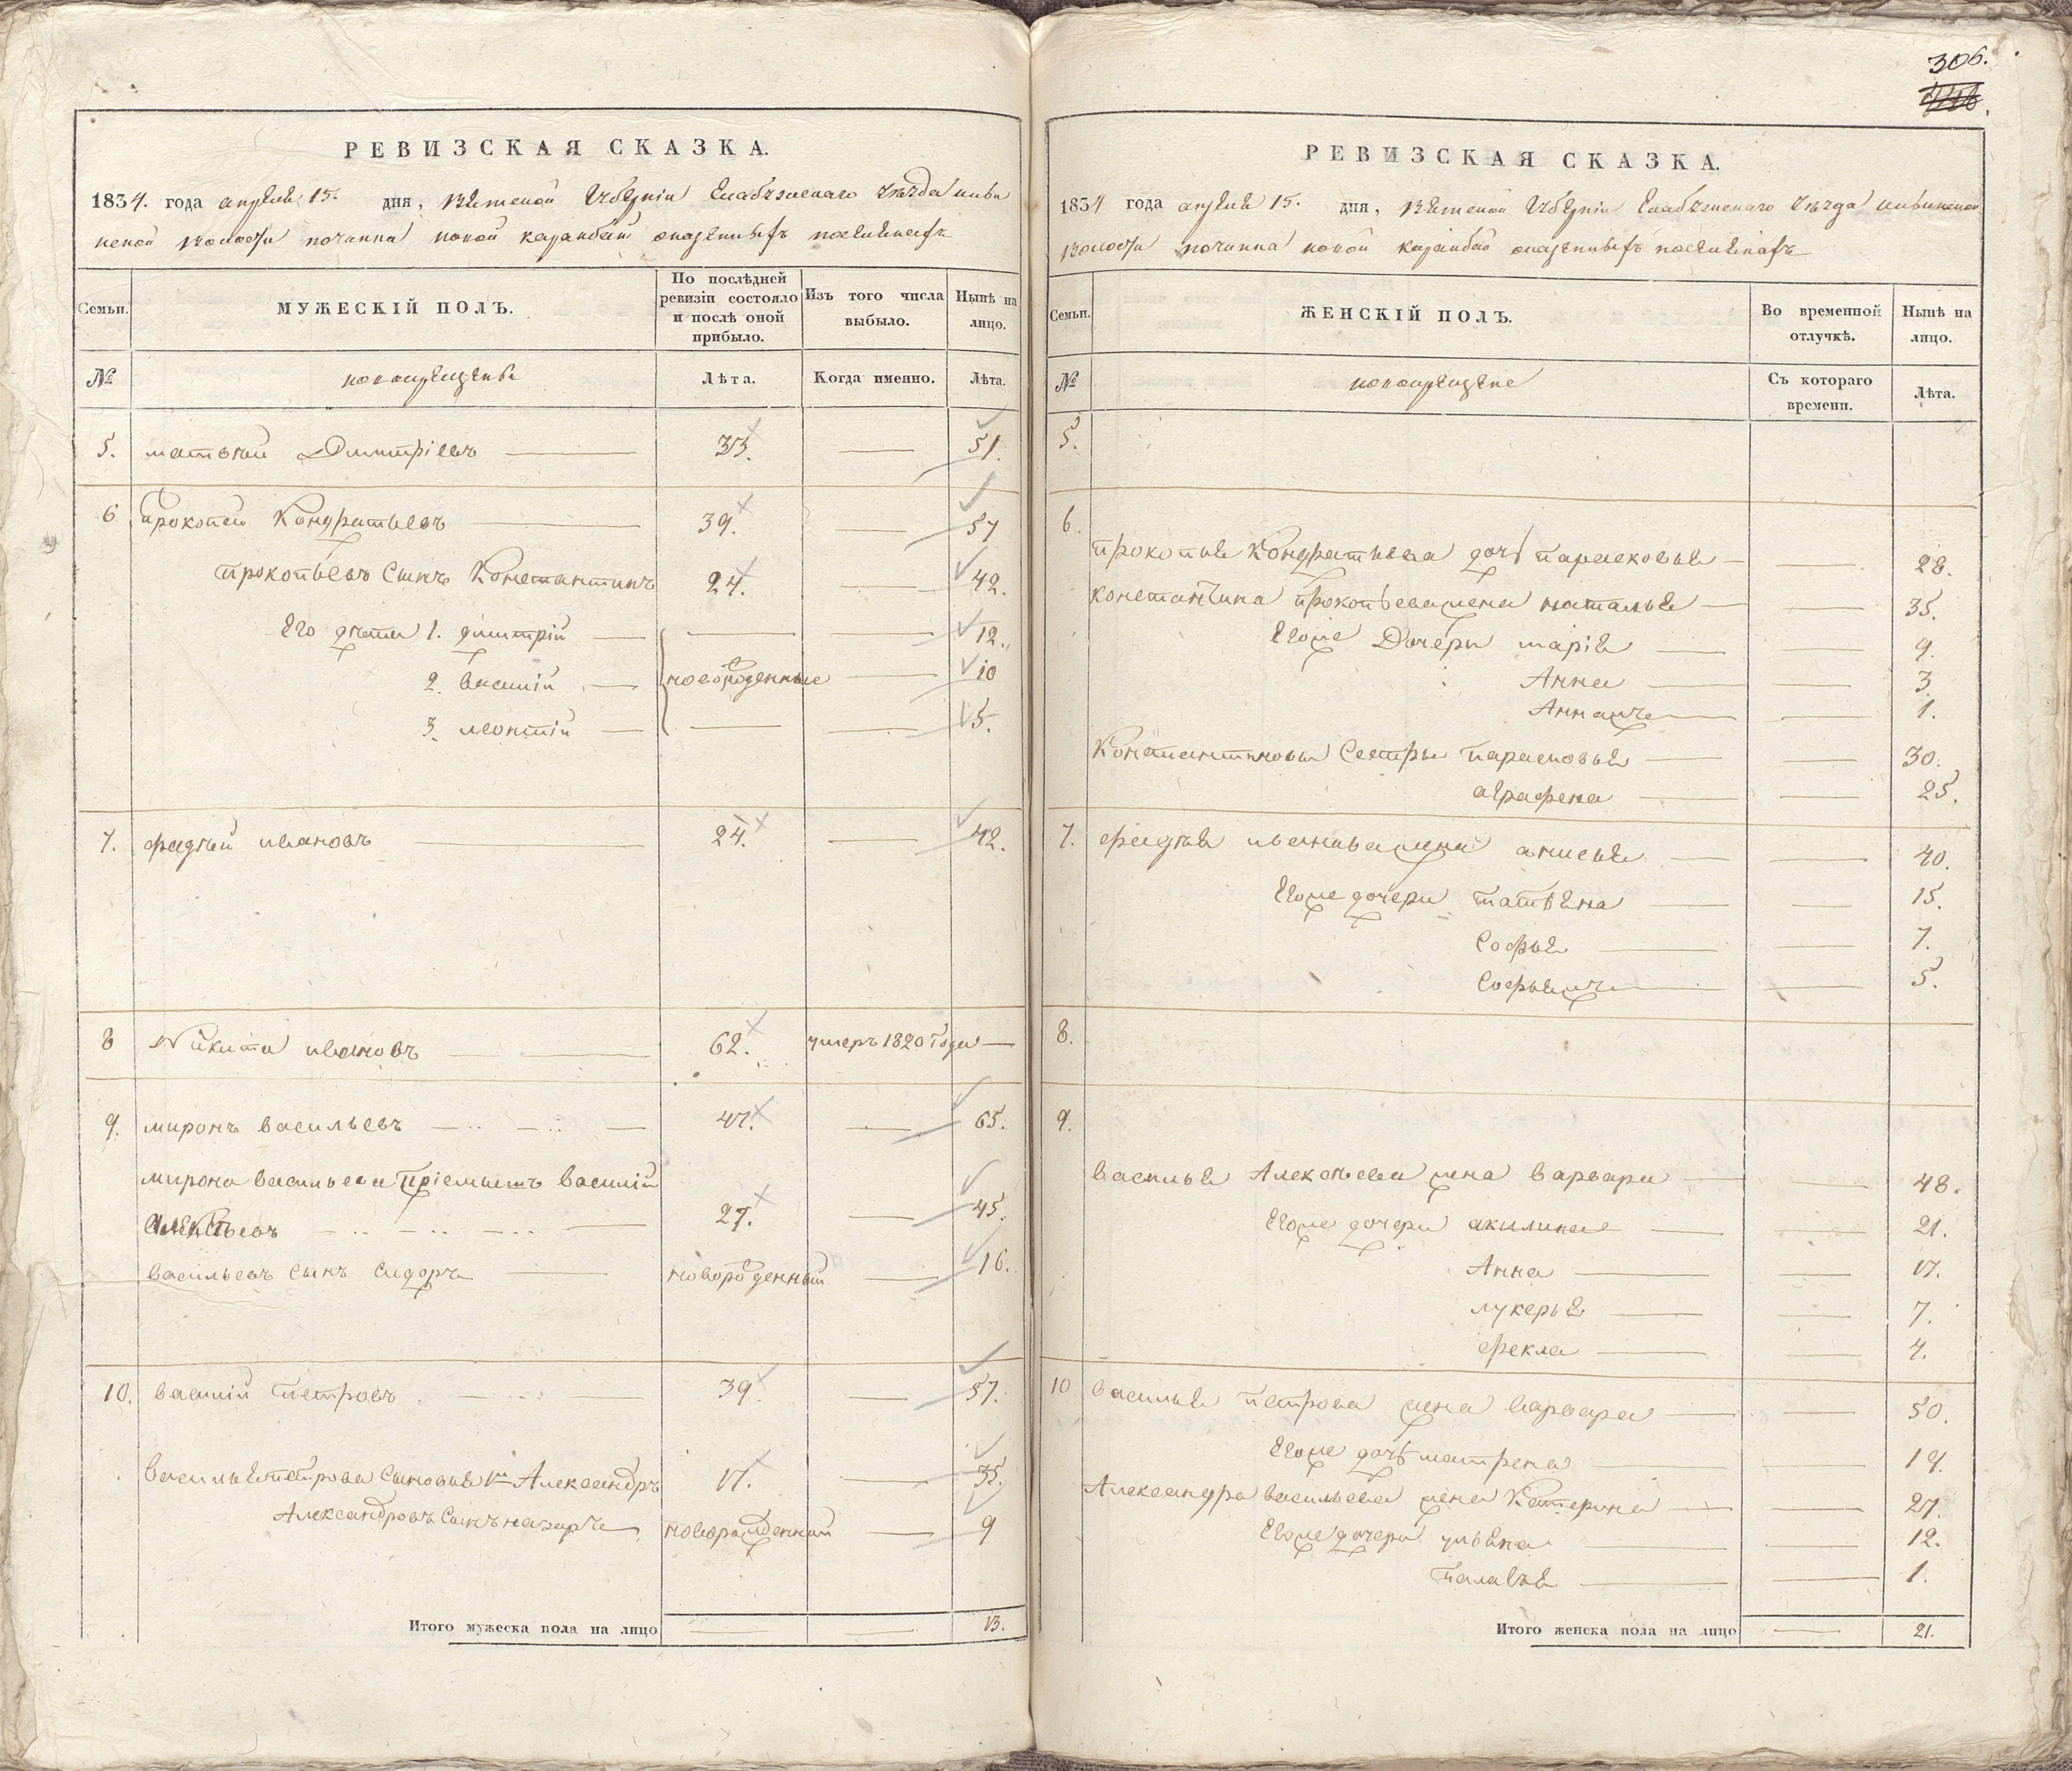 306.
РЕВИЗСКАЯ СКАЗКА.
1834. года апреля 15. дня, Вятской Губерніи Елабужскаго Уѣзда
волости починка новой
Семьи.
МУЖЕСКІЙ ПОЛЪ.
По послѣдней ревизіи состояло и послѣ оной прибыло.
Изъ того числа выбыло.
Нынѣ на лицо.
№
новокрещены
Лѣта.
Когда именно.
Лѣта.
5. матвѣй Дмитріевъ 33. 51.
6 прокопей Кондратьевъ 39. 57
прокопьевъ Сынъ Константинъ 24. 42.
Его дѣти 1. димитрій 12.
2. василій новорожденные 10
3. леонтій 5.
7. фадѣй ивановъ 24. 42.
8 Никита ивановъ 62. умеръ 1820 года
9. миронъ васильевъ 47. 65.
мирона васильева пріемышъ василій
Алексѣевъ 27. 45.
васильевъ сынъ сидоръ новорожденный 16.
10. василій петровъ 39. 57.
василья петрова сыновья 1й Александръ 17. 35.
Александровъ Сынъ назаръ новорожденный 9
Итого мужеска пола на лицо 13.
РЕВИЗСКАЯ СКАЗКА.
1834 года апреля 15. дня, Вятской Губерніи Елабужскаго Уѣзда
волости починка новой
Семьи.
ЖЕНСКІЙ ПОЛЪ.
Во временной отлучкѣ.
Нынѣ на лицо.
№
новокрещене
Съ котораго времени.
Лѣта.
5.
6.
прокопья Кондратьева дочь парасковья 28.
константина прокопьева жена наталья 35.
Егоже Дочери марія 9.
Анна 3
Аннажъ 1.
Константиновы Сестры парасковья 30.
аграфена 25.
7. фадѣя иванова жена анисья 40.
Егоже дочери татьяна 15.
Софья 7.
Софьяжъ 5.
8.
9.
василья Алексѣева жена варвара 48.
Егоже дочери акилина 21.
Анна 17.
лукерья 7.
фекла 4.
10 василья петрова жена варвара 50.
Егоже дочь матрена 19.
Александра васильева жена Катерина 27.
Егоже дочери ульяна 12.
палагѣя 1.
Итого женска пола на лицо 21.